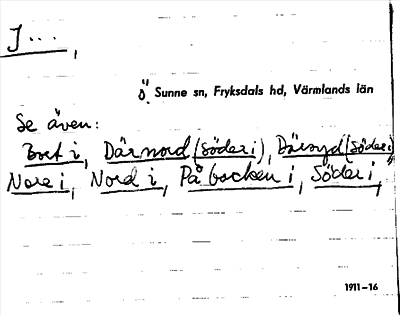 I...,
Ö. Sunne sn, Fryksdals hd, Värmlands län
Se även:
Bort i, Där nord (söder i), Där syd (söder i)
Nore i, Nord i, På backen i, Söder i,
1911–16